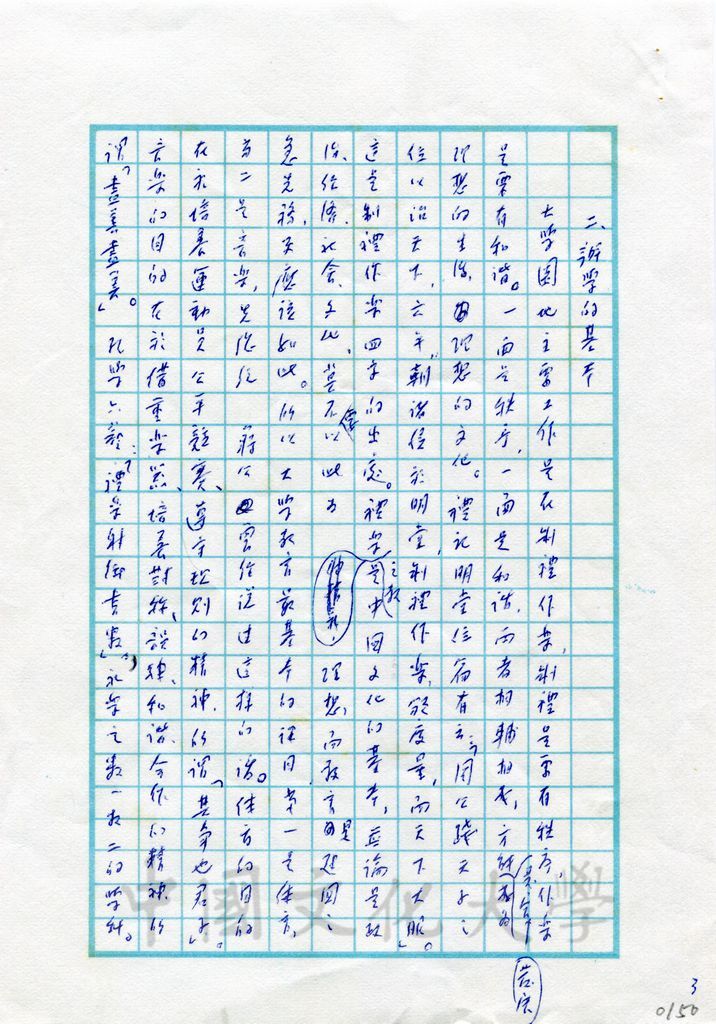 二、辦學的基本
大學園地主要工作是在制禮作樂，制禮是要有秩序，作樂
是要有和諧。一面是秩序，一面是和諧，兩者相輔相成，方能
理想的生活，理想的文化。禮記明堂位篇有云：「周公踐天子之
位以治天下，六年，朝諸侯於明堂，制禮作樂，頒度量，而天下大服」。
這是制禮作樂四字的出處。禮樂之教是中國文化的基本，無論是政
治、經濟、社會、文化，莫不以此為理想，而教育是建國之
急先務，更應該如此。所以大學教育最基本的課目，第一是體育，
第二是音樂，先總統 蔣公曾經說過這樣的話。體育的目的
在於培養運動員公平競賽、遵守規則的精神，所謂「其爭也君子」。
音樂的目的在於借重樂器、培養對稱、諧和、合作的精神，所
謂「盡善盡美」。孔學六藝：「禮樂射御書數」，禮樂之教一數二的學科。
中國文化大學
3
0150